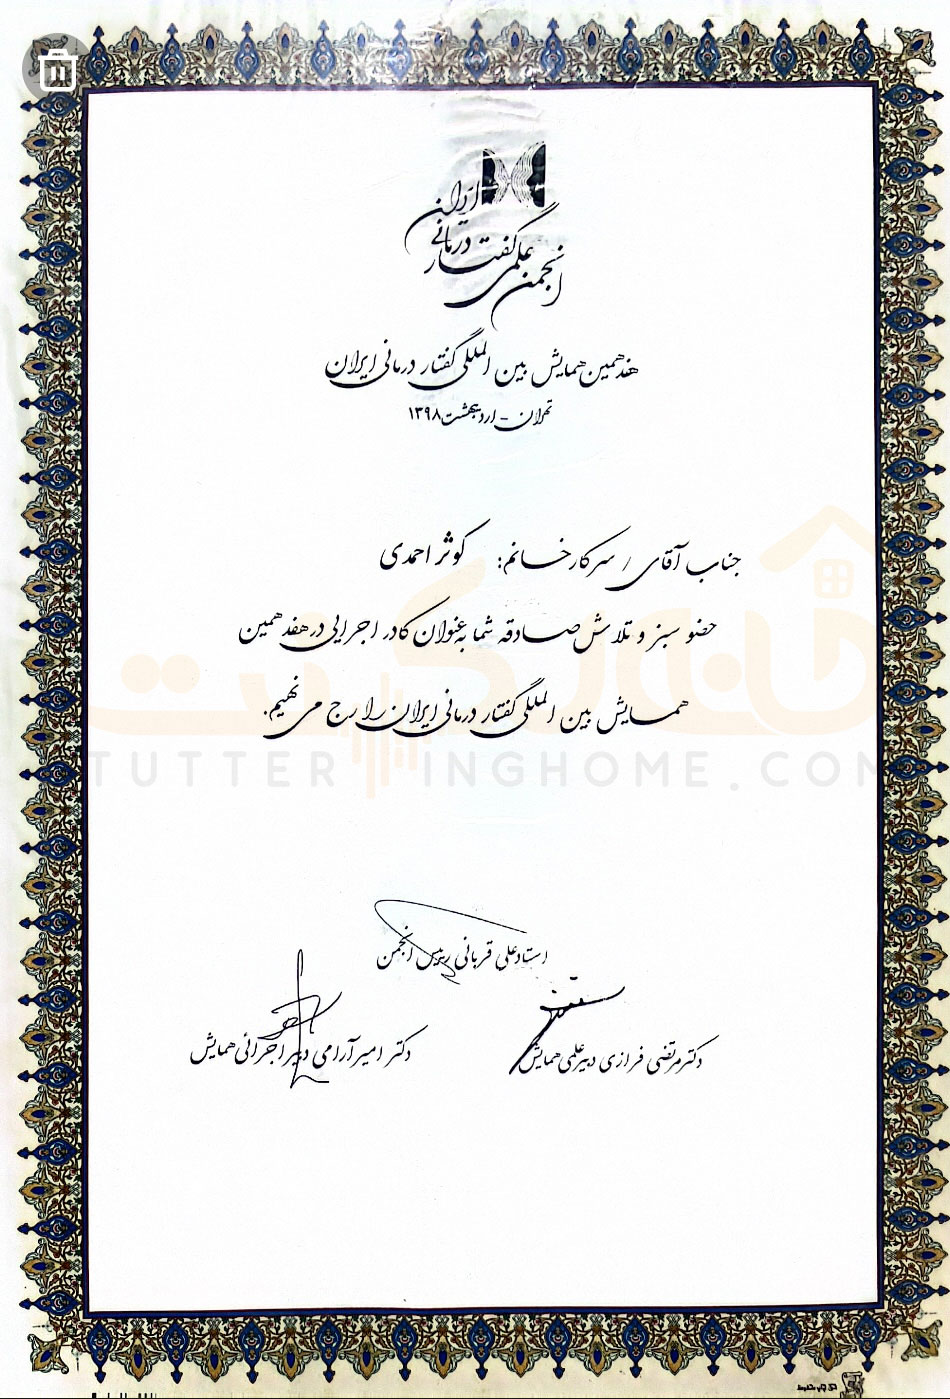 انجمن علمی گفتار درمانی ایران
هفدهمین همایش بین المللی گفتار درمانی ایران
تهران - اردیبهشت ۱۳۹۸
جناب آقای / سرکار خانم: کوثر احمدی
حضو سبز و تلاش صادقه شما به عنوان کادر اجرایی در هفدهمین
همایش بین المللی گفتار درمانی ایران را ارج می نهیم.
TUTTERINGHOME.COM
استاد علی قربانی رییس انجمن
دکتر مرتضی فرازی دبیر علمی همایش
دکتر امیر آرامی دبیر اجرائی همایش